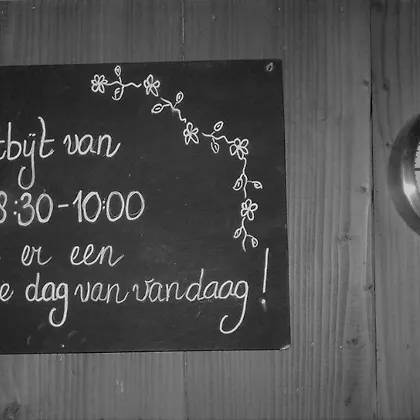 tbijt van
8:30-10:00
er een
e dag van vandaag!